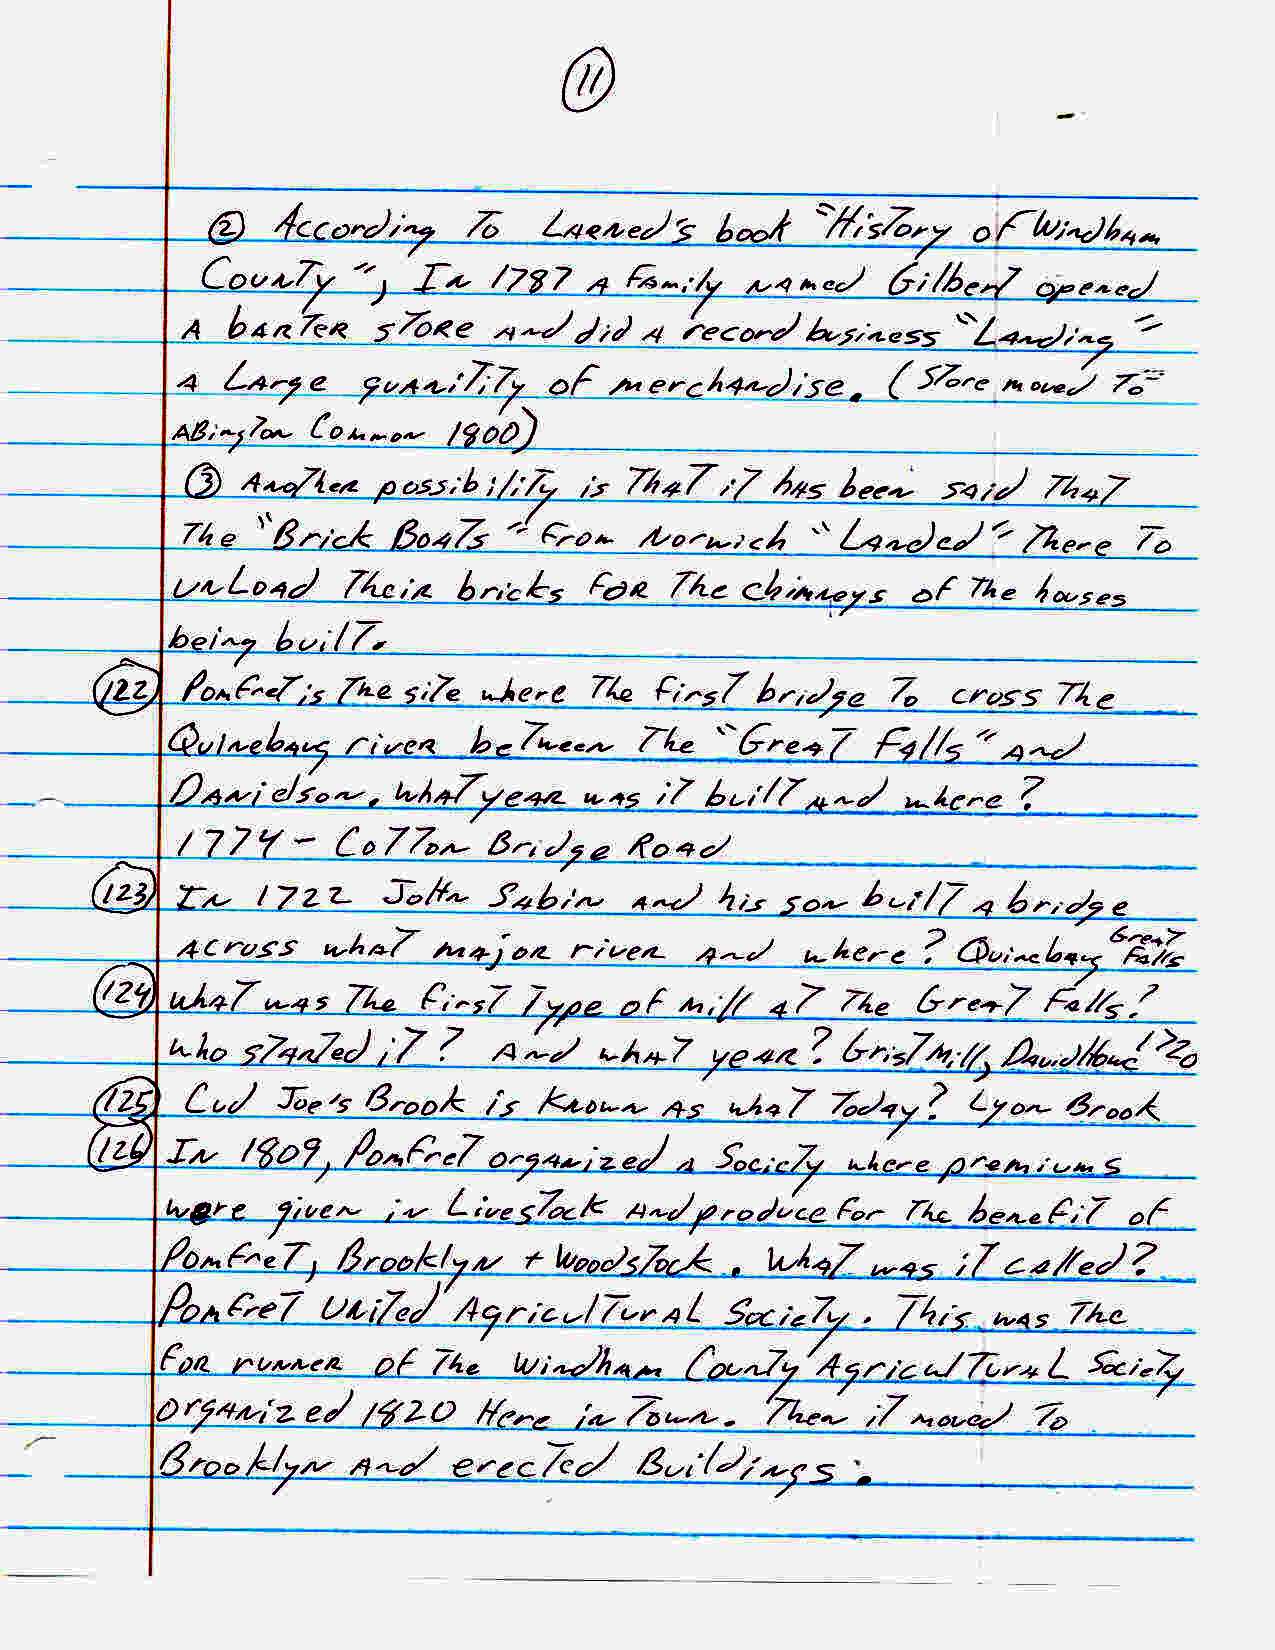 11
② According To Larned's book "History of Windham
County", In 1787 A Family named Gilbert opened
A barter store and did A record business "Landing"
A Large quanitity of merchandise. (Store moved To
Abington Common 1800)
③ Another possibility is That it has been said That
The "Brick Boats" From Norwich "Landed" There To
unload Their bricks for The chimneys of the houses
being built.
122 Pomfret is The site where The first bridge To cross The
Quinebaug river between The "Great Falls" and
Danielson. What year was it built and where?
1774 - Cotton Bridge Road
123 In 1722 John Sabin and his son built A bridge
across what major river and where? Quinebaug Great Falls
124 What was The first Type of mill at The Great Falls?
Who started it? And what year? Grist Mill, David Howe 1720
125 Cud Joe's Brook is Known as what Today? Lyon Brook
126 In 1809, Pomfret organized a Society where premiums
were given in Livestock and produce for The benefit of
Pomfret, Brooklyn + Woodstock. What was it called?
Pomfret United Agricultural Society. This was The
for runner of The Windham County Agricultural Society
organized 1820 Here in Town. Then it moved To
Brooklyn and erected Buildings.